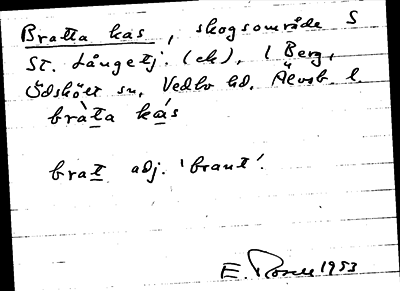 Bratta kas, skogsområde S
St. Långetj. (ek), l Berg,
Ödskölt sn, Vedbo hd. Älvsb. l.
bràta kás
brat adj. 'brant'.
E. 1953